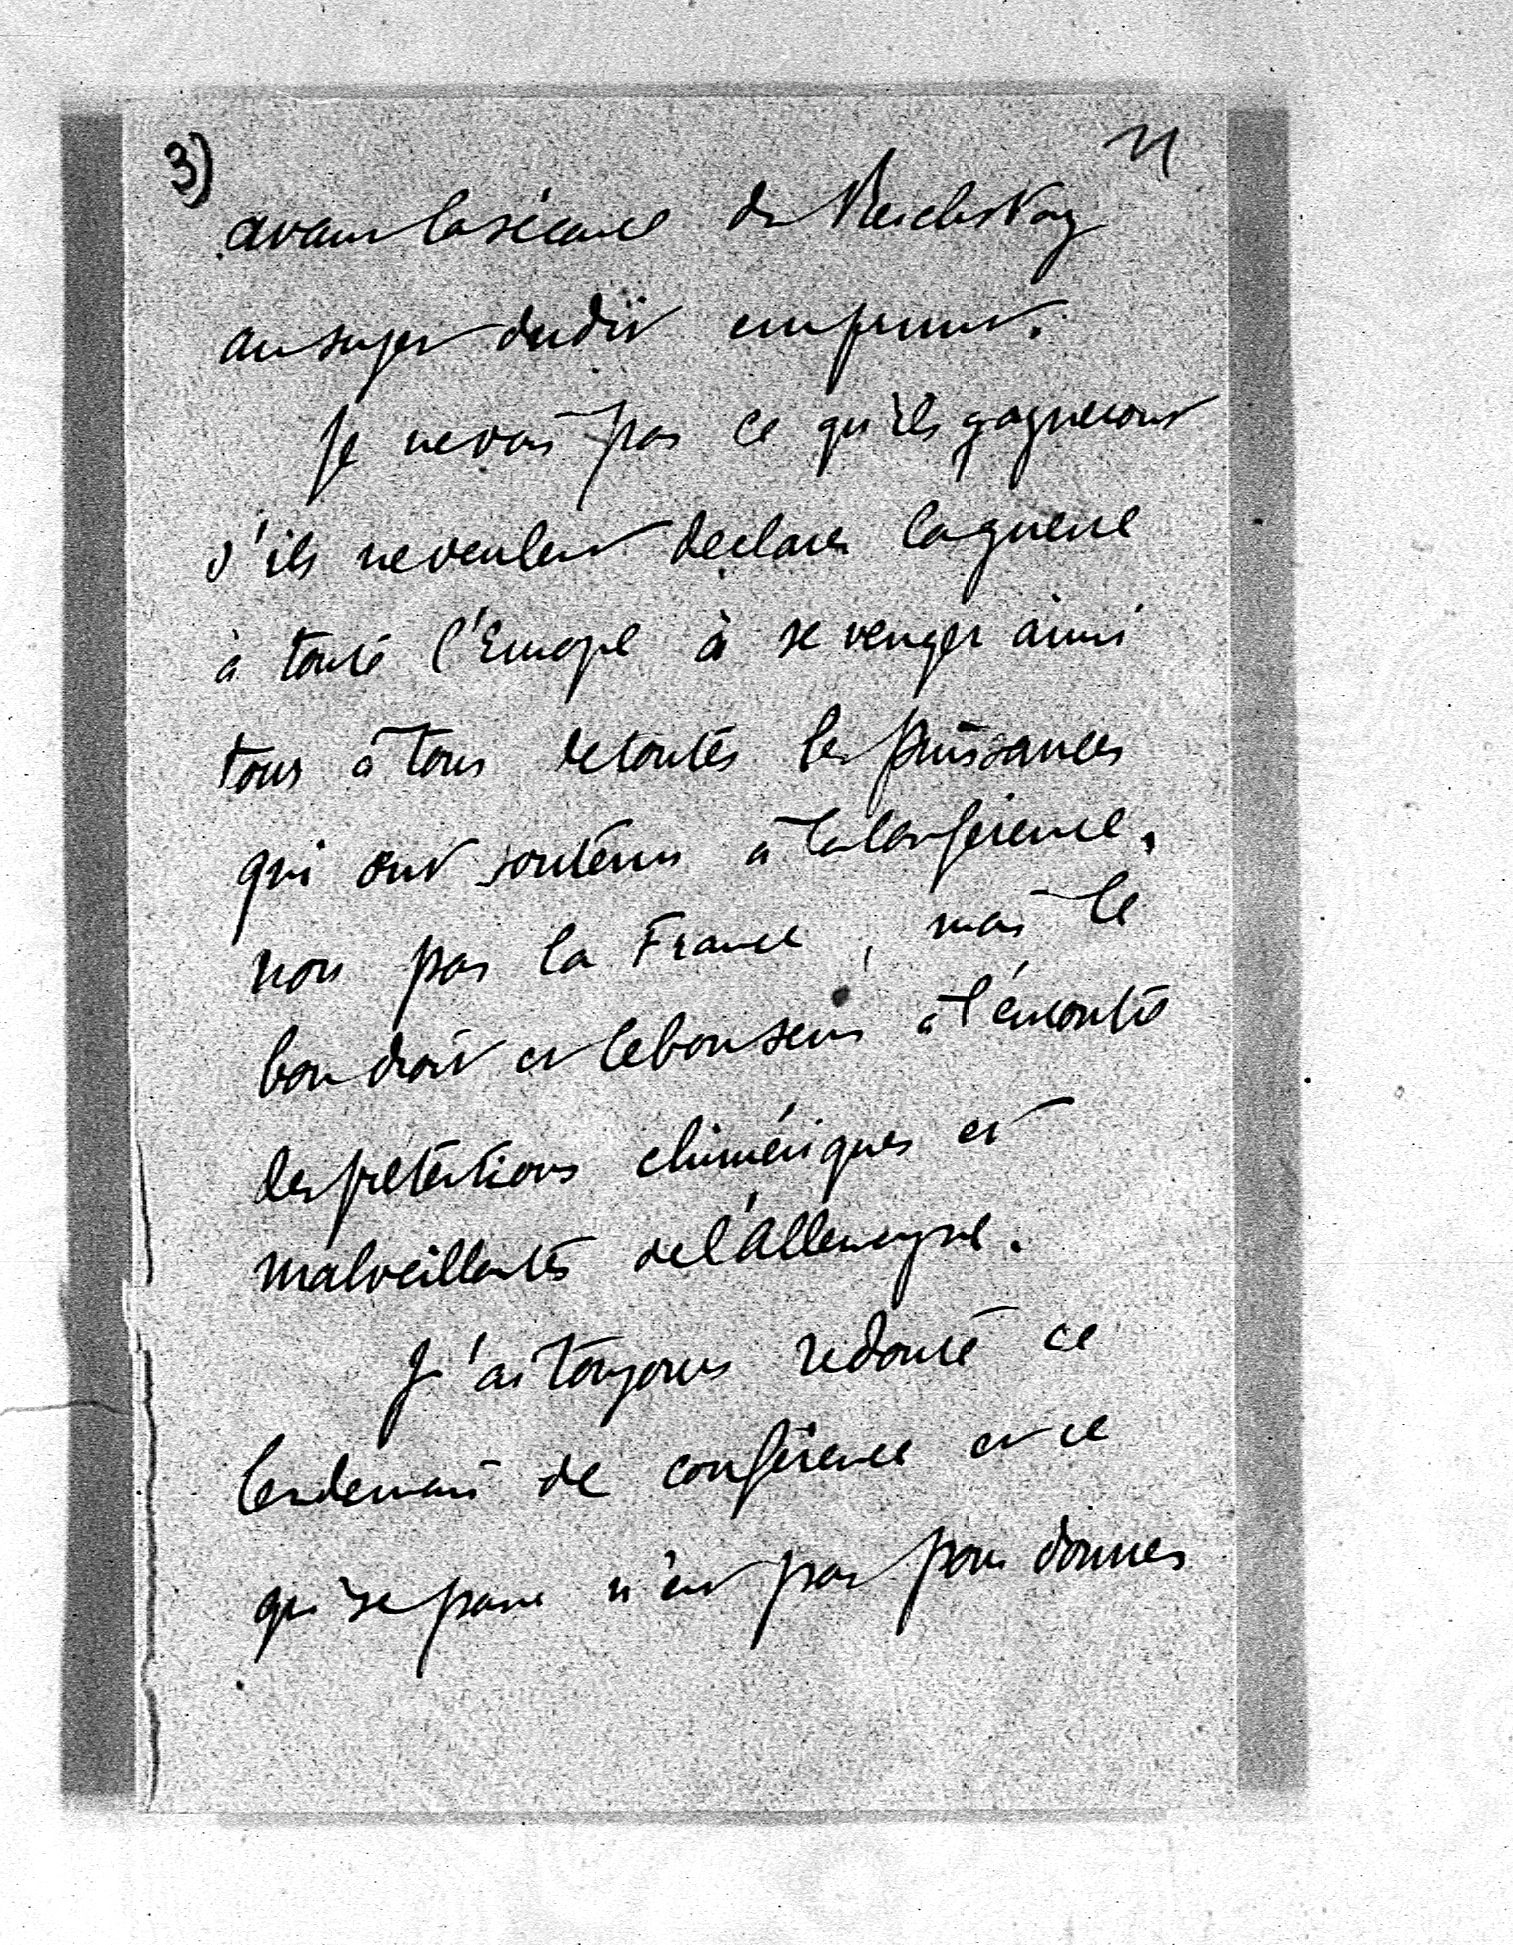 3)
avant la séance du Reichstag
au sujet dudit emprunt.
Je ne vois pas ce qu'ils gagneront
s'ils ne veulent declarer la guerre
à toute l'Europe à se venger ainsi
tour à tour de toutes les puissances
qui ont soutenu à la Conférence,
non pas la France, mais le
bon droit et le bon sens à l'encontre
des prétentions chimériques et
malveillantes de l'Allemagne.
J'ai toujours redouté ce
lendemain de conférence et ce
qui se passe n'est pas pour donner